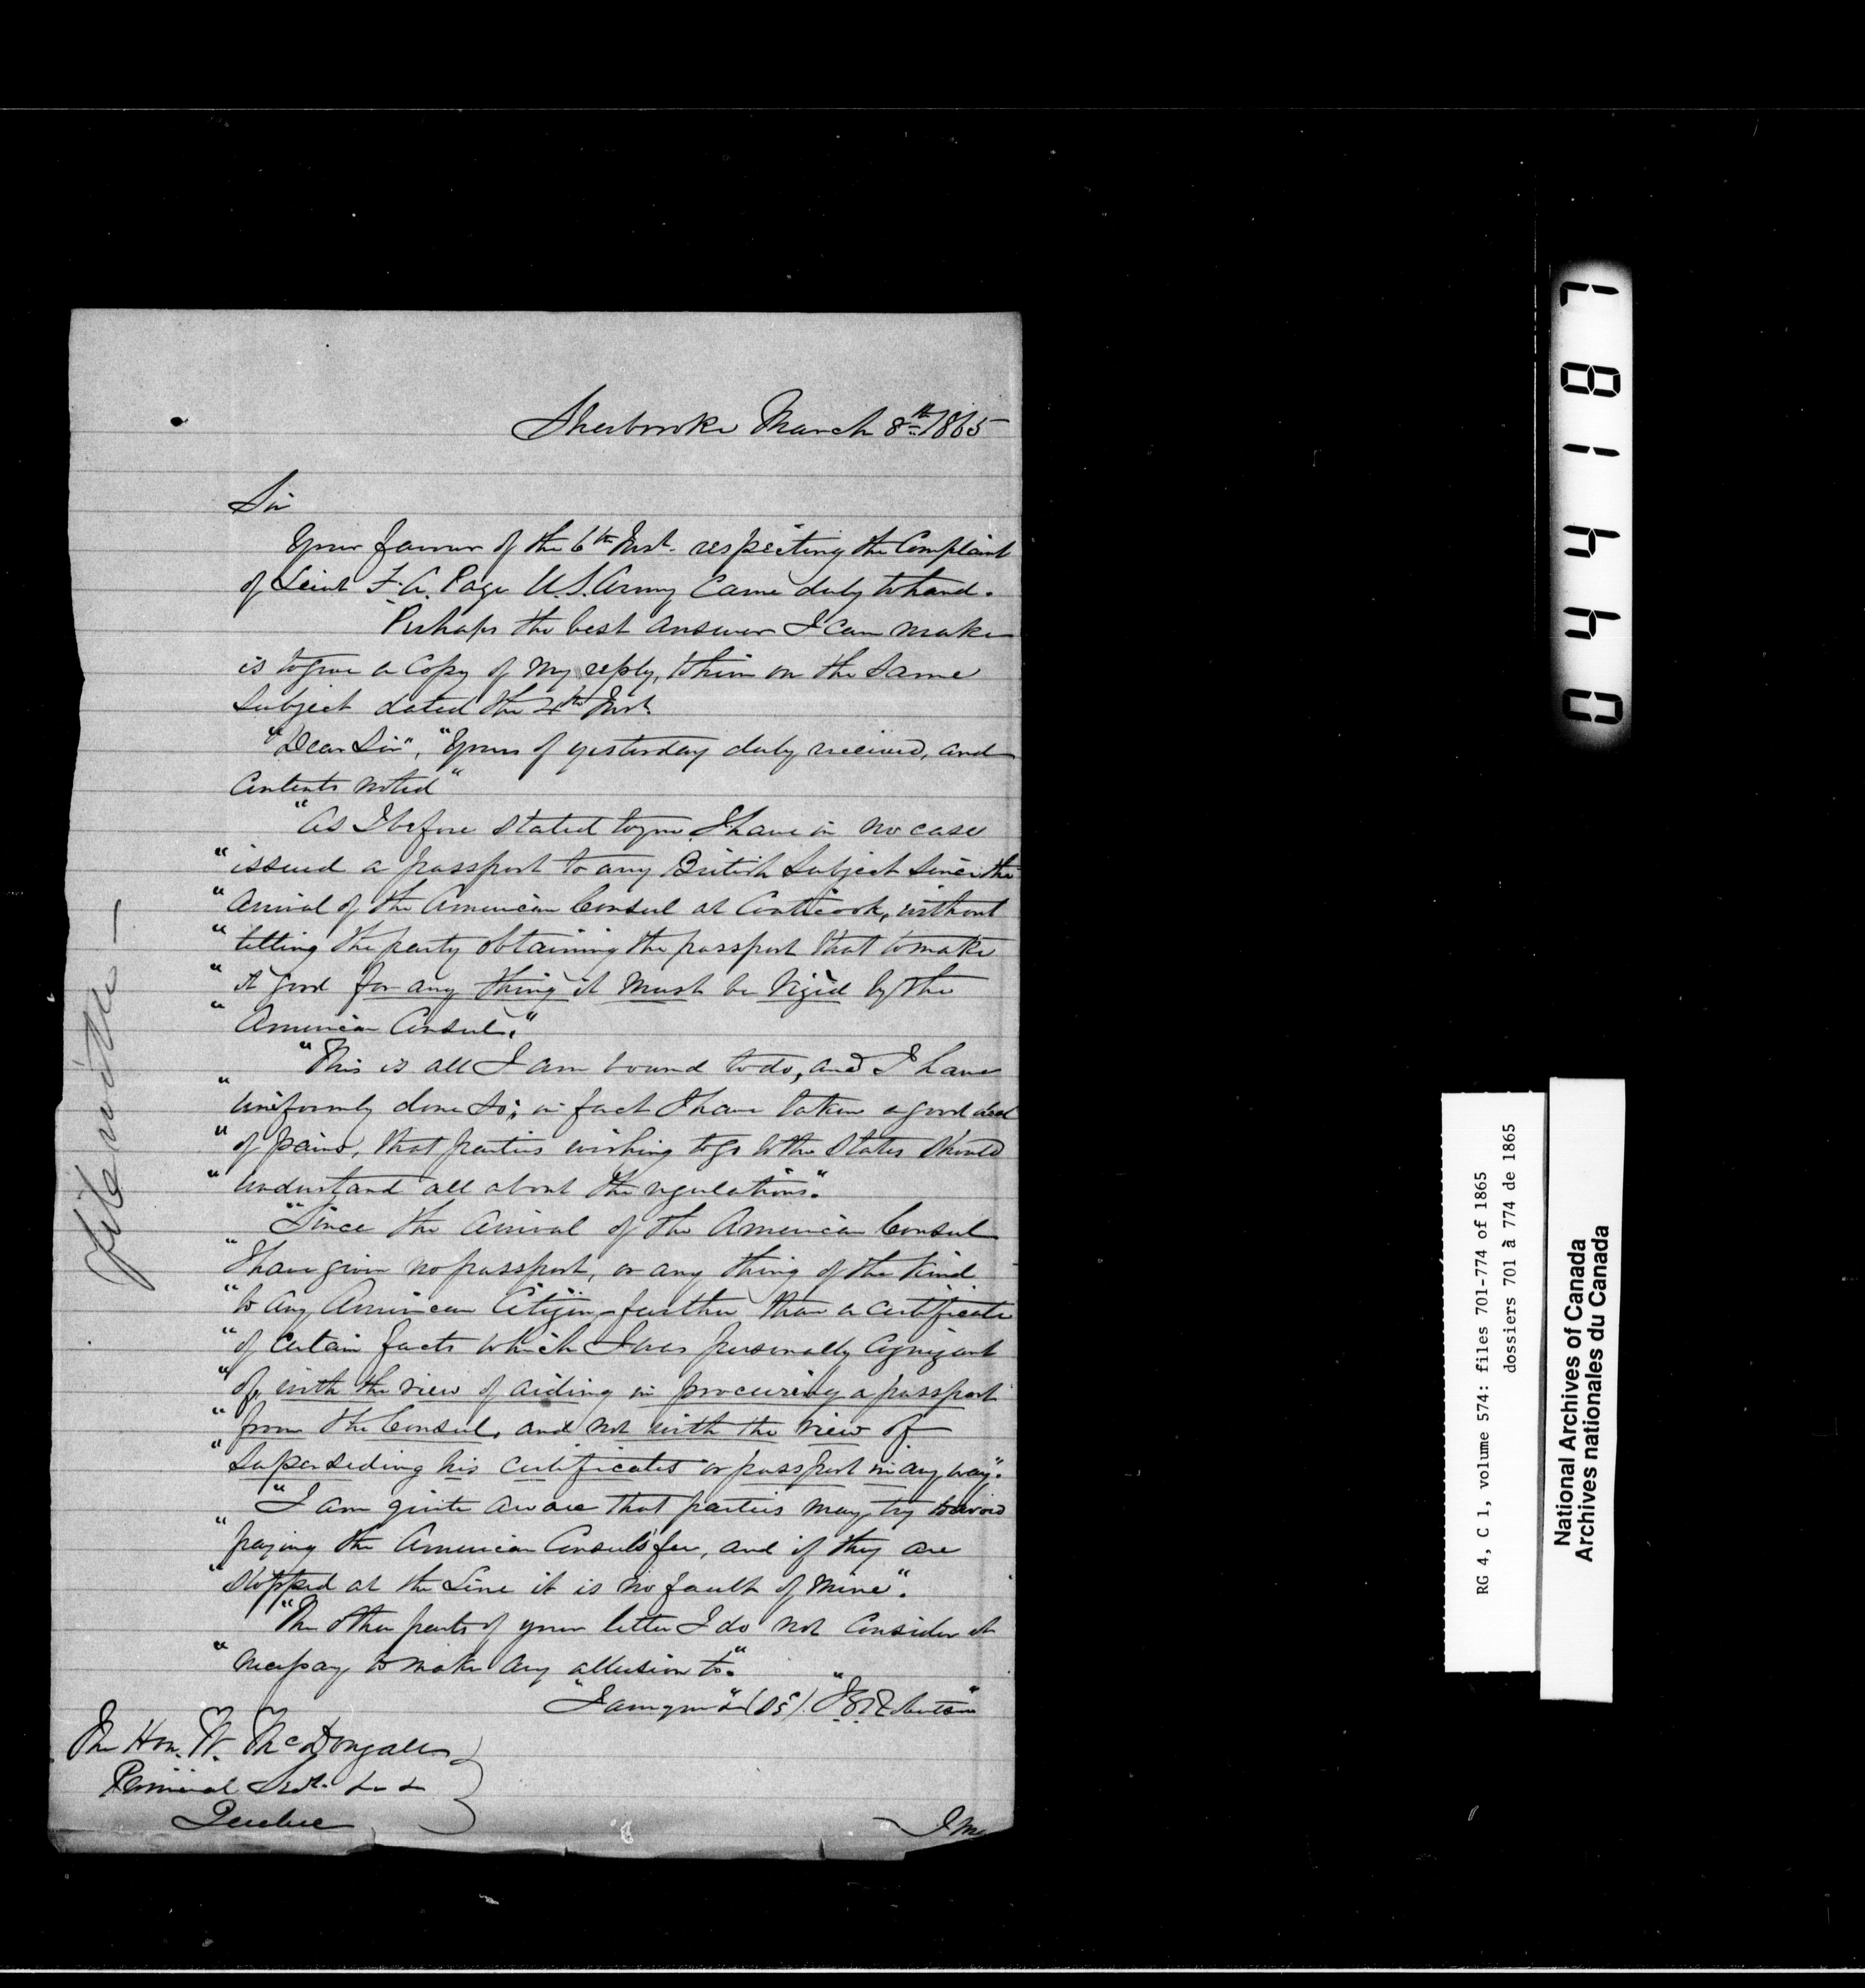 Sherbrooke March 8th 1865
Sir
Your favour of the 6th Inst. respecting the Complaint
of Leiut F. A. Page U.S. Army Came duly to hand.
Perhaps the best answer I can make
is to give a Copy of my reply, to him on the Same
Subject dated the 4th Inst.
"Dear Sir", "Yours of yesterday duly received, and
Contents noted"
"As I before Stated to you I have in no case
"issued a passport to any British Subject Since the
"Arrival of the American Consul at Coaticook, without
"telling the party obtaining the passport that to make
"it good for any thing it must be Vizéd by the
"American Consul."
"This is all I am bound to do, and I have
"uniformly done so; in fact I have taken a good deal
"of pains, that parties wishing to go to the States Should
"understand all about the regulations".
"Since the Arrival of the American Consul
"I have given no passport, or any thing of the Kind
"to any American Citizen further than a Certificate
"of Certain facts which I was personally Cognizant
"of, with the view of aiding in procuring a passport
"from the Consul, and not with the view of
"Superseding his Certificates or passport in any way".
"I am quite aware that parties may try to avoid
"paying the American Consul's fee, and if they are
"Stopped at the Line it is no fault of mine".
"The other parts of your letter I do not Consider it
"necessary to make any allusion to."
"I am your &" "J. G. Robertson"
The Hon. W. McDougall
Provincial Secty. & &
Quebec
I m
file with —
044187
RG 4, C 1, volume 574: files 701-774 of 1865
dossiers 701 à 774 de 1865
National Archives of Canada
Archives nationales du Canada